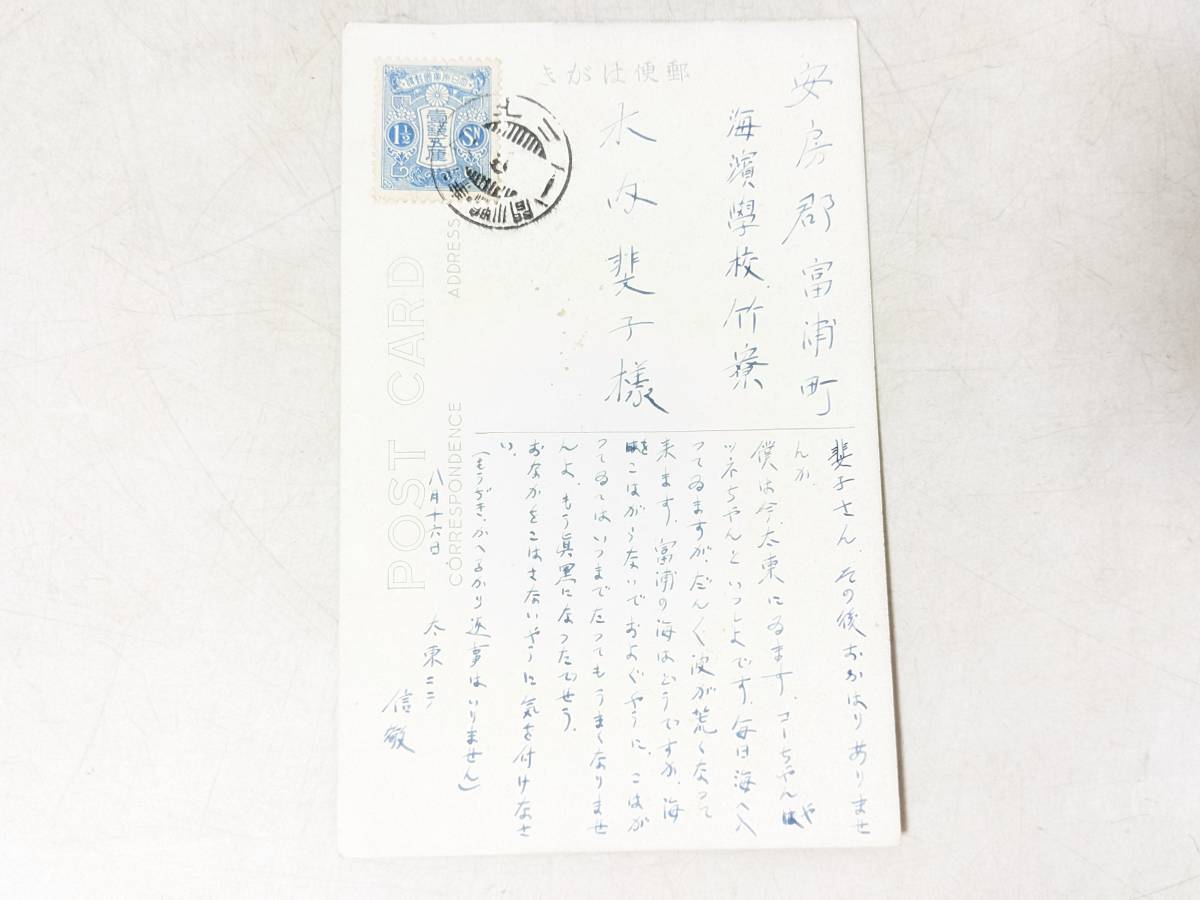 郵便はがき
安房郡富浦町
海濱學校竹寮
木内斐子様
斐子さん、その後おかはりありませ
んか。
僕は今、太東にゐます。コーちやんや
ツネちやんといつしよです。毎日海へ入
つてゐますが、だん〱波が荒くなつて
来ます。富浦の海はどうですか。海
をこはがらないでおよぐやうに。こはが
つてゐてはいつまでたつてもうまくなりませ
んよ。もう真黒になつたでせう。
おなかをこはさないやうに気を付けなさ
い。
(もうぢき、かへるから返事はいりません)
八月十六日 太東ニテ
信敏
POST CARD
CORRESPONDENCE
ADDRESS
壹錢五厘
1½
SN